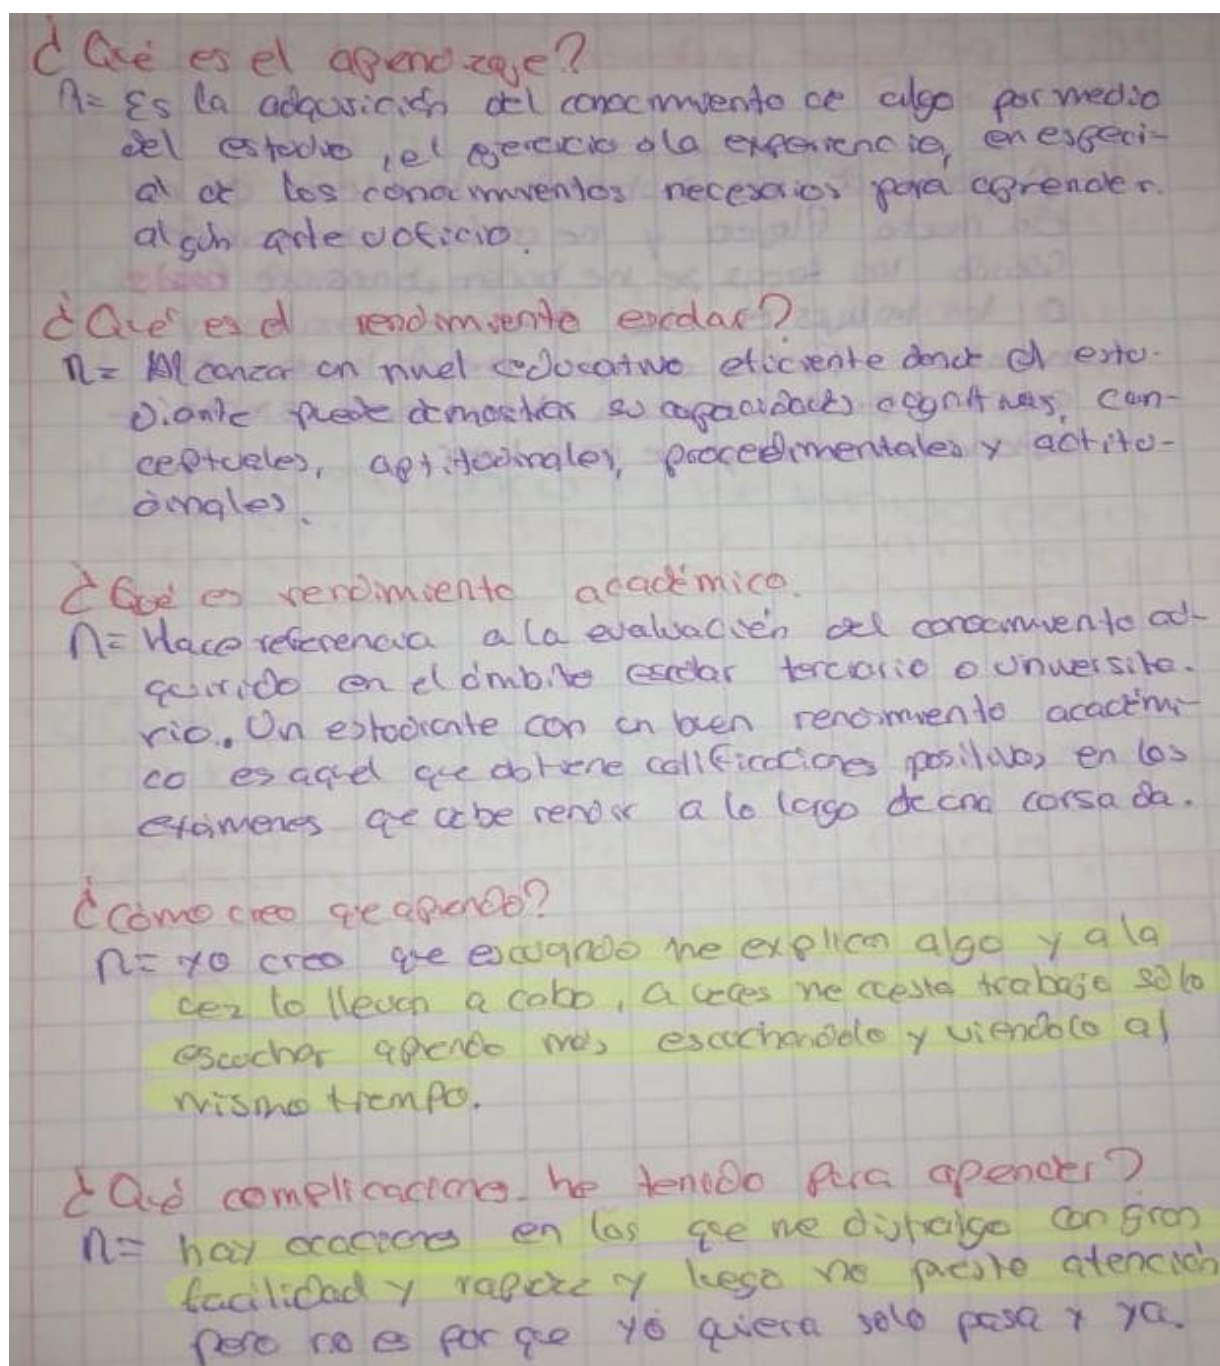 ¿Qué es el aprendizaje?
R= Es la adquisición del conocimiento de algo por medio
del estudio, el ejercicio o la experiencia, en especi-
al de los conocimientos necesarios para aprender
algún arte u oficio.
¿Qué es el rendimiento escolar?
R= Alcanzar un nivel educativo eficiente donde el estu-
diante puede demostrar su capacidades cognitivas, con-
ceptuales, aptitudinales, procedimentales y actitu-
dinales.
¿Qué es rendimiento académico.
R= Hace referencia a la evaluación del conocimiento ad-
quirido en el ámbito escolar terciario o universita-
rio. Un estudiante con un buen rendimiento académi-
co es aquel que obtiene calificaciones positivas en los
exámenes que debe rendir a lo largo de una cursada.
¿Cómo creo que aprendo?
R= yo creo que cuando me explican algo y a la
vez lo llevan a cabo, a veces me cuesta trabajo sólo
escuchar aprendo más escuchandolo y viendolo al
mismo tiempo.
¿Qué complicaciones he tenido para aprender?
R= hay ocaciones en las que me distraigo con gran
facilidad y rapidez y luego no presto atención
pero no es por que yo quiera solo pasa y ya.